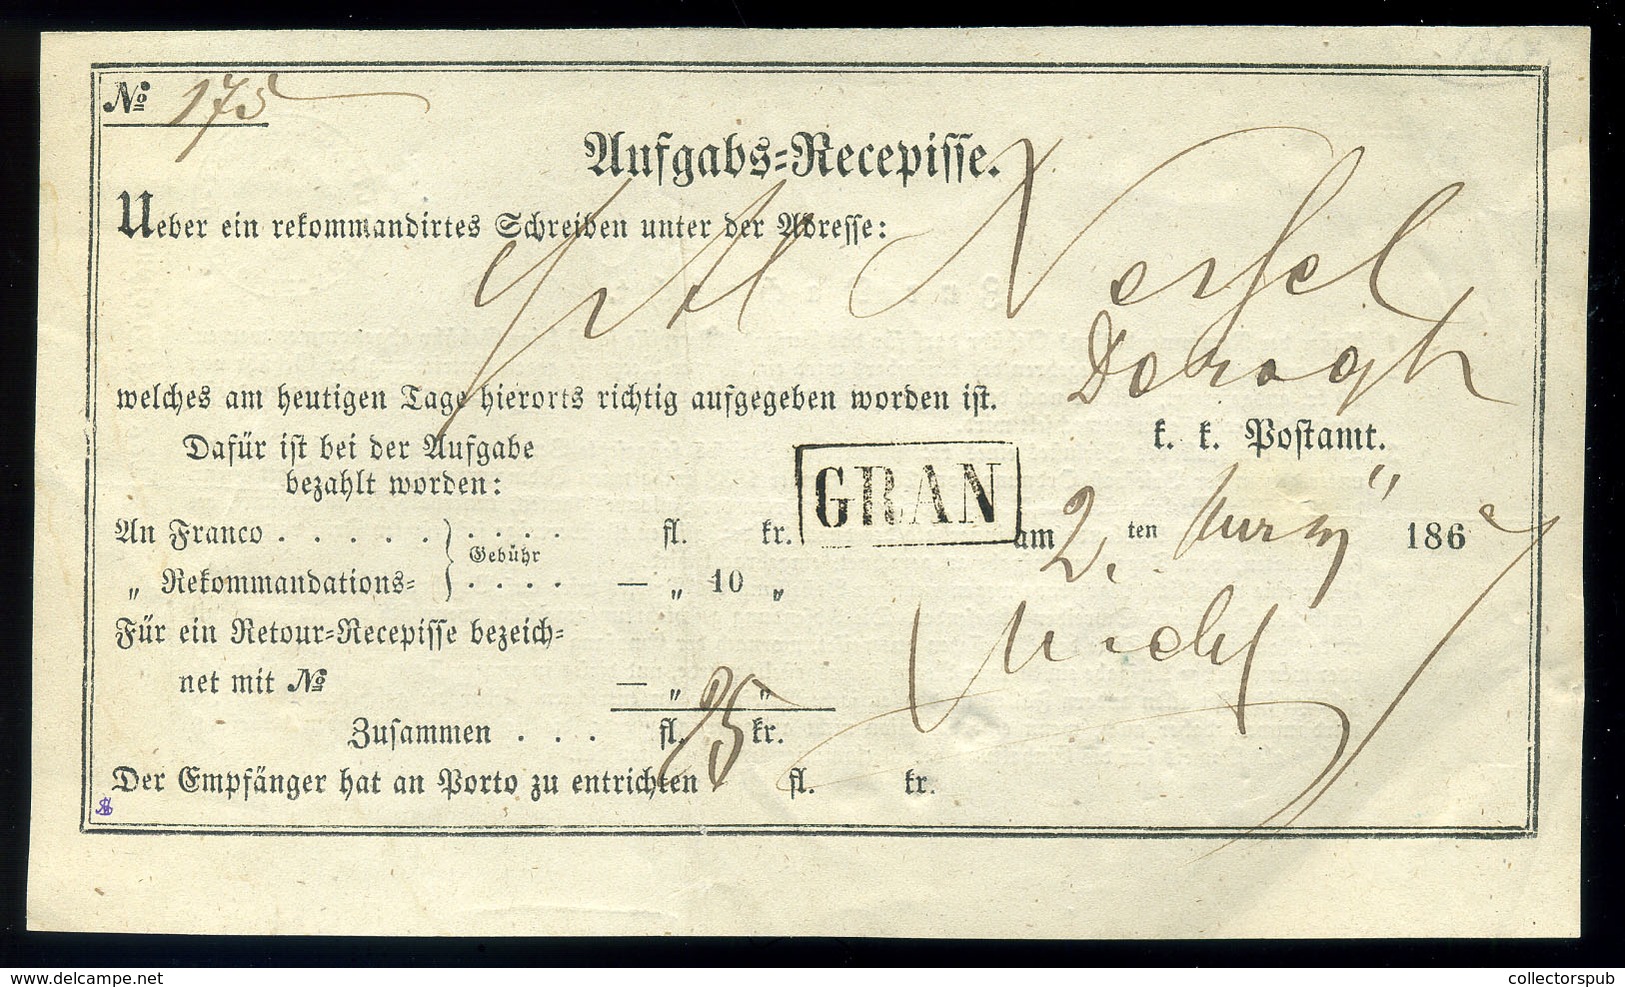 № 175
Aufgabs-Recepisse.
Ueber ein rekommandirtes Schreiben unter der Adresse:
Doragh
welches am heutigen Tage hierorts richtig aufgegeben worden ist.
k. k. Postamt.
Dafür ist bei der Aufgabe
bezahlt worden:
GRAN
An Franco . . . . . } . . . . fl. kr.
Gebühr
am 2. ten 186
„ Rekommandations- } . . . . — „ 10 „
Für ein Retour-Recepisse bezeich-
net mit № — „ „
Zusammen . . . fl. 25 kr.
Der Empfänger hat an Porto zu entrichten fl. kr.
delcampe.net
collectorspub